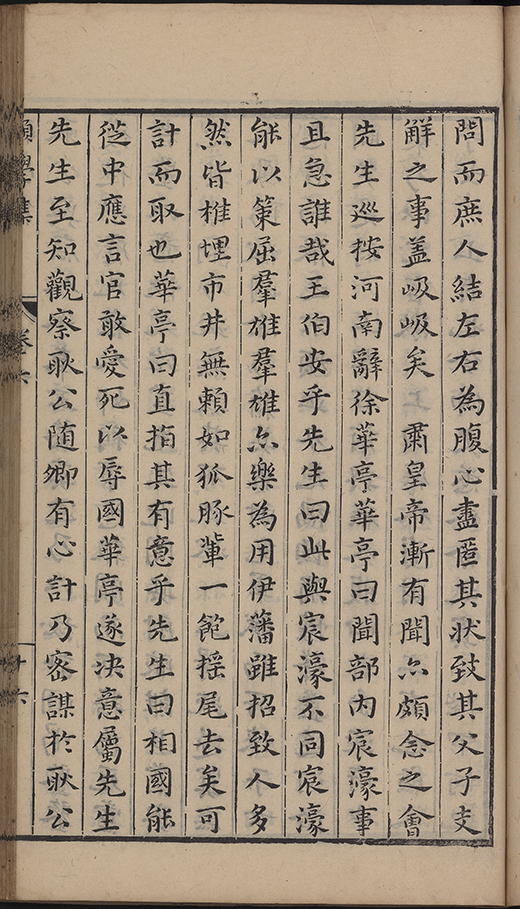 問而庶人結左右為腹心盡匿其狀致其父子支
解之事盖岋岋矣 肅皇帝漸有聞亦頗念之會
先生巡按河南辭徐華亭華亭曰聞部内宸濠事
且急誰哉王伯安乎先生曰此與宸濠不同宸濠
能以䇿屈羣雄羣雄亦樂為用伊藩雖招致人多
然皆椎埋市井無賴如狐豚軰一飽揺尾去矣可
計而取也華亭曰直指其有意乎先生曰相國能
從中應言官敢愛死以辱國華亭遂决意屬先生
先生至知觀察耿公随卿有心計乃宻謀於耿公
學集 卷六